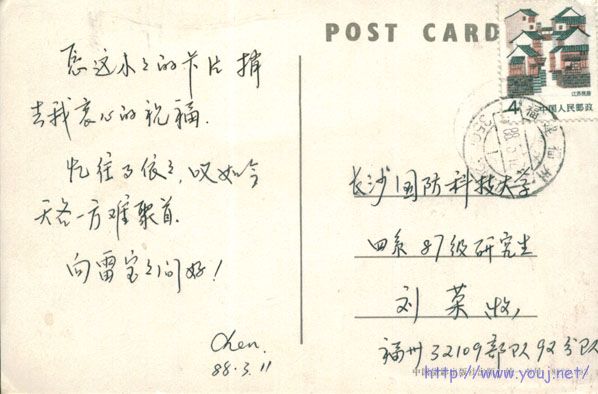 POST CARD
愿这小小的卡片捎
去我衷心的祝福.
忆往多依依,叹如今
天各一方难聚首.
向雷宝宝问好!
Chen.
88.3.11
江苏民居
4 中国人民邮政
长沙国防科技大学
四系87级研究生
刘 荣 收
福州32109部队92分队
http://www.youj.net/